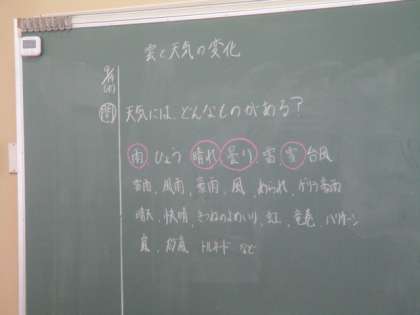 雲と天気の変化
問 天気には、どんなものがある?
雨 ひょう 晴れ 曇り 雷 雪 台風
雷雨、風雨、豪雨、風、あられ、ゲリラ豪雨
晴天、快晴、きつねのよめいり、虹、竜巻、ハリケーン
トルネード など